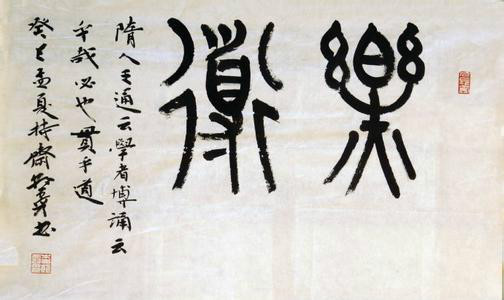 樂道
隋人王通云學者博誦云
乎哉必也貫乎道
癸巳孟夏持齋書